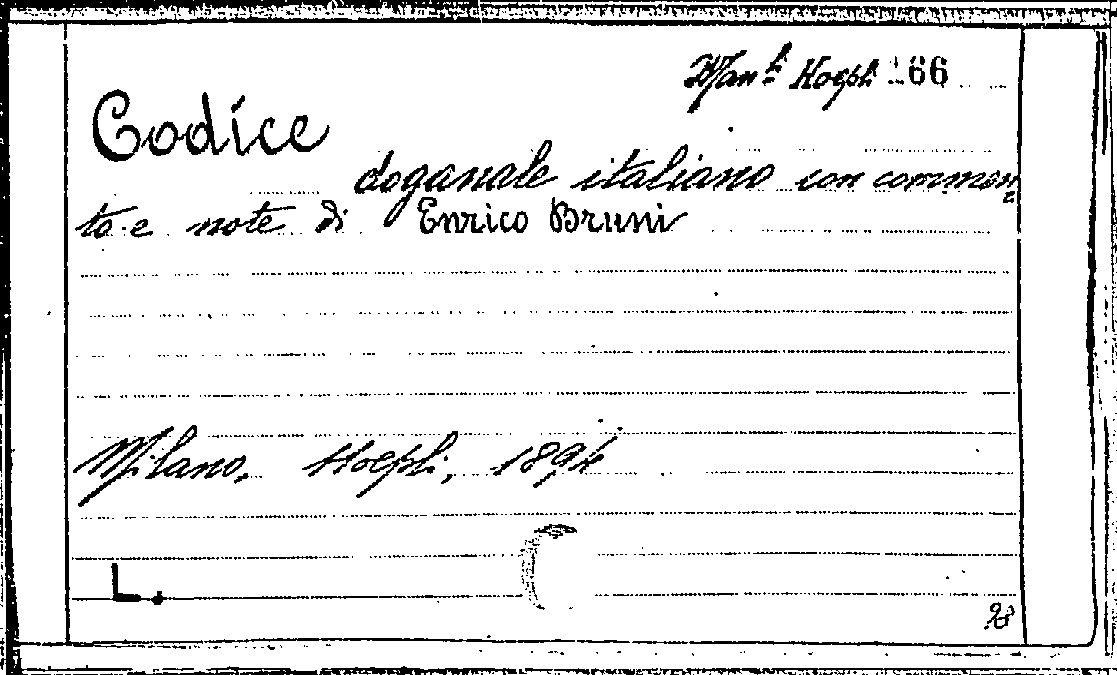 Man.li Hoepli 166
Codice
doganale italiano con commen
to e note di Enrico Bruni
Milano, Hoepli, 1894
L.